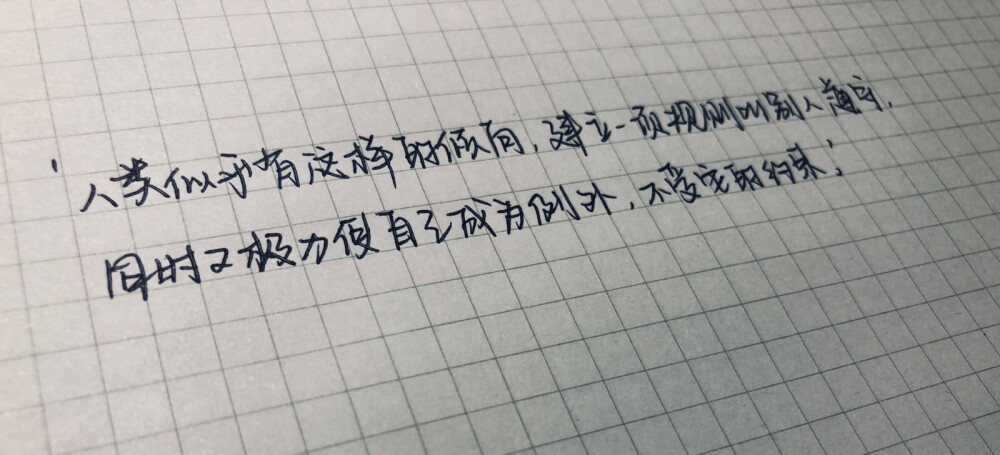 '人类似乎有这样的倾向,建立一项规则叫别人遵守,
同时又极力使自己成为例外,不受它的约束,'